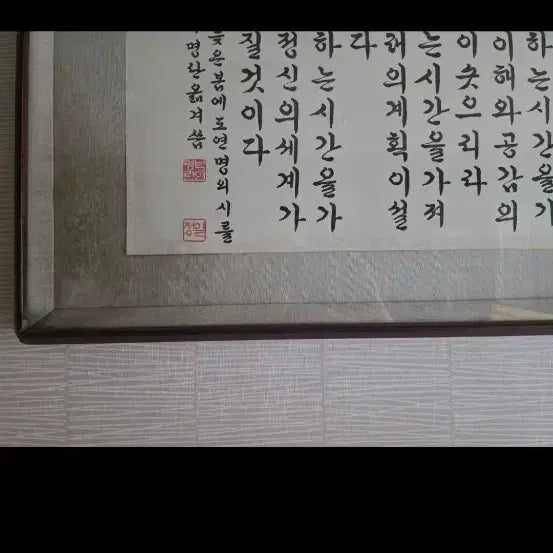 하는시간을
이해와공감의
이솟으리라
는시간을가져
래의계획이설
다
하는시간을가
정신의세계가
질것이다
늦은봄에도연명의시를
명란옮겨씀
일정